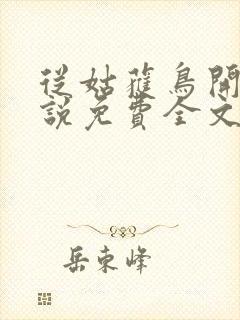 從姑蘓鳥開
說免費全文
岳東峰